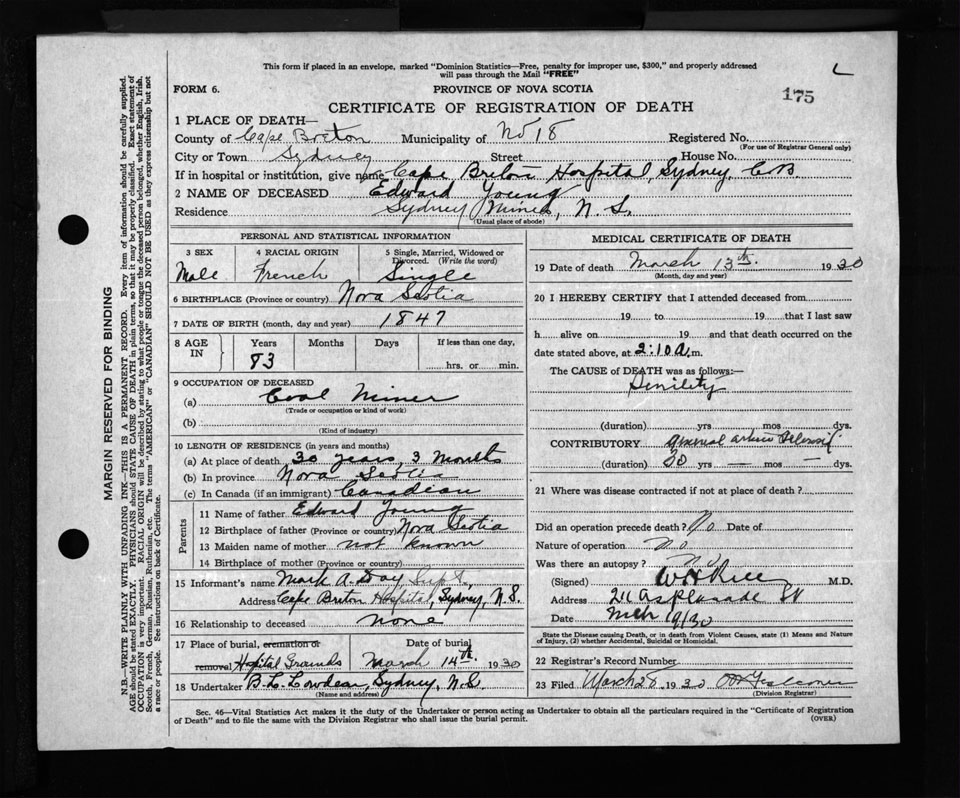 This form if placed in an envelope, marked "Dominion Statistics—Free, penalty for improper use, $300," and properly addressed
will pass through the Mail "FREE"
175
FORM 6.
PROVINCE OF NOVA SCOTIA
CERTIFICATE OF REGISTRATION OF DEATH
1 PLACE OF DEATH—
County of Cape Breton Municipality of No 18 Registered No.
(For use of Registrar General only)
City or Town Sydney Street House No.
If in hospital or institution, give name Cape Breton Hospital, Sydney, C.B.
2 NAME OF DECEASED Edward Young
Residence Sydney Mines, N.S.
(Usual place of abode)
PERSONAL AND STATISTICAL INFORMATION
3 SEX 4 RACIAL ORIGIN 5 Single, Married, Widowed or
Divorced. (Write the word)
Male French Single
6 BIRTHPLACE (Province or country) Nova Scotia
7 DATE OF BIRTH (month, day and year) 1847
8 AGE IN Years Months Days If less than one day,
83 hrs. or min.
9 OCCUPATION OF DECEASED
(a) Coal Miner
(Trade or occupation or kind of work)
(b)
(Kind of industry)
10 LENGTH OF RESIDENCE (in years and months)
(a) At place of death 30 years 3 months
(b) In province Nova Scotia
(c) In Canada (if an immigrant) Canadian
Parents
11 Name of father Edward Young
12 Birthplace of father (Province or country) Nova Scotia
13 Maiden name of mother not known
14 Birthplace of mother (Province or country)
15 Informant's name Mark A. Day Supt.
Address Cape Breton Hospital, Sydney, N.S.
16 Relationship to deceased none
17 Place of burial, cremation or Date of burial
removal Hopital Grounds March 14th. 1930
18 Undertaker B.L. Lowdean, Sydney, N.S.
(Name and address)
MEDICAL CERTIFICATE OF DEATH
19 Date of death March 13th. 1930
(Month, day and year)
20 I HEREBY CERTIFY that I attended deceased from
19 to 19 that I last saw
h alive on 19 and that death occurred on the
date stated above, at 2:10 a.m.
The CAUSE of DEATH was as follows:—
Senility
(duration) yrs mos dys.
CONTRIBUTORY general arterio
(duration) 20 yrs — mos — dys.
21 Where was disease contracted if not at place of death?
Did an operation precede death? No Date of
Nature of operation no
Was there an autopsy? no
(Signed) M.D.
Address 211 Esplanade
Date Mch 19/30
State the Disease causing Death, or in death from Violent Causes, state (1) Means and Nature
of Injury, (2) whether Accidental, Suicidal or Homicidal.
22 Registrar's Record Number
23 Filed March 28 1930
(Division Registrar)
Sec. 46—Vital Statistics Act makes it the duty of the Undertaker or person acting as Undertaker to obtain all the particulars required in the "Certificate of Registration
of Death" and to file the same with the Division Registrar who shall issue the burial permit.
(OVER)
MARGIN RESERVED FOR BINDING
N.B.—WRITE PLAINLY WITH UNFADING INK—THIS IS A PERMANENT RECORD. Every item of information should be carefully supplied.
AGE should be stated EXACTLY. PHYSICIANS should STATE CAUSE OF DEATH in plain terms, so that it may be properly classified. Exact statement of
OCCUPATION is very important. RACIAL ORIGIN will be described by stating to what people or tongue the deceased person belonged, whether English, Irish,
Scotch, French, German, Russian, Ruthenian, etc. The terms "AMERICAN" or "CANADIAN" SHOULD NOT BE USED as they express citizenship but not
a race or people. See instructions on back of Certificate.